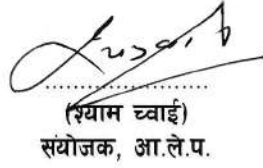 ....................
(श्याम च्वाई)
संयोजक, आ.ले.प.